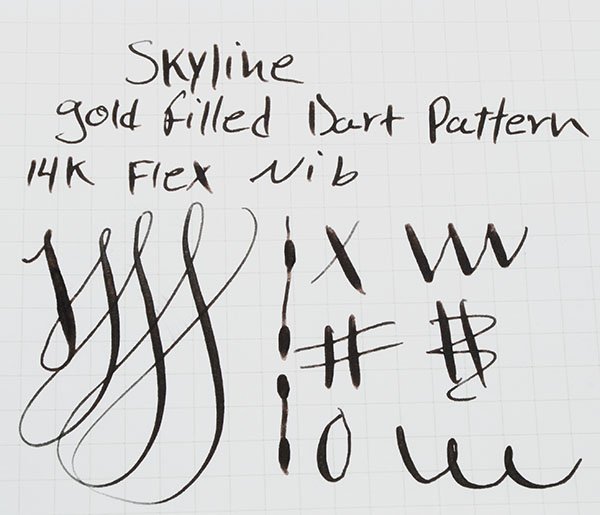 Skyline
gold filled Dart Pattern
14K Flex Nib
X
#
$
O